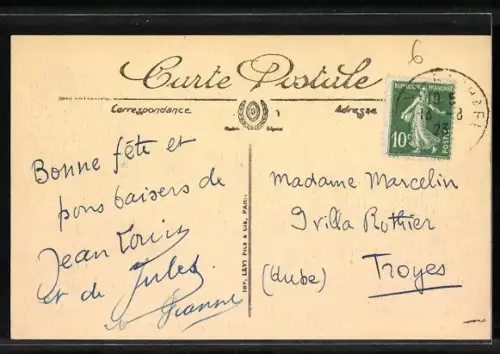 6
Carte Postale
Correspondance
Adresse
REPUBLIQUE FRANCAISE
10c
POSTES
23
Bonne fête et
bons baisers de
Jean Louis
et de Jules
Jeanne
IMP. LÉVY FILS & CIE, PARIS
Madame Marcelin
villa Rothier
(Aube) Troyes